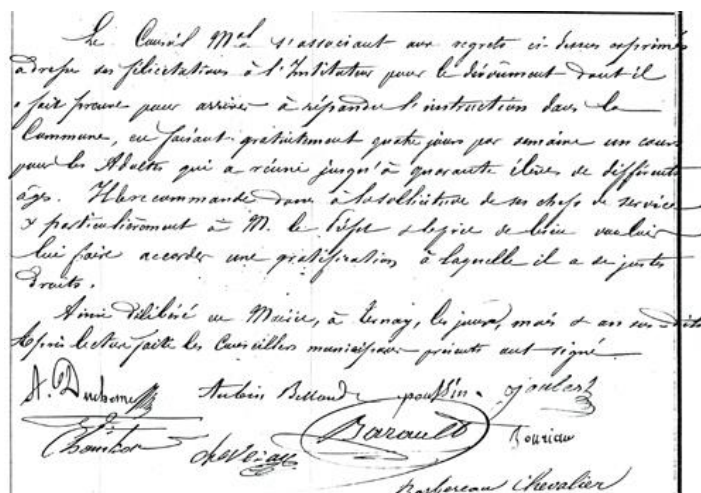 Le Conseil Mal s'associant aux regrets ci-dessus exprimés
adresse ses félicitations à l'Instituteur pour le dévoûment dont il
a fait preuve pour arriver à répandre l'instruction dans la
Commune, en faisant gratuitement quatre jours par semaine un cours
pour les Adultes qui a réuni jusqu'à quarante élèves de différents
âges. Il le recommande donc à la sollicitude de ses chefs de service
& particulièrement à M. le Préfet de bien vouloir
lui faire accorder une gratification à laquelle il a de justes
droits.
Ainsi délibéré en Mairie, à Ternay, les jour, mois & an sus-dits
Après lecture faite les Conseillers municipaux présents ont signé.
A. Duchesne Aubin Poussin Joubert
Barault
Chevalier